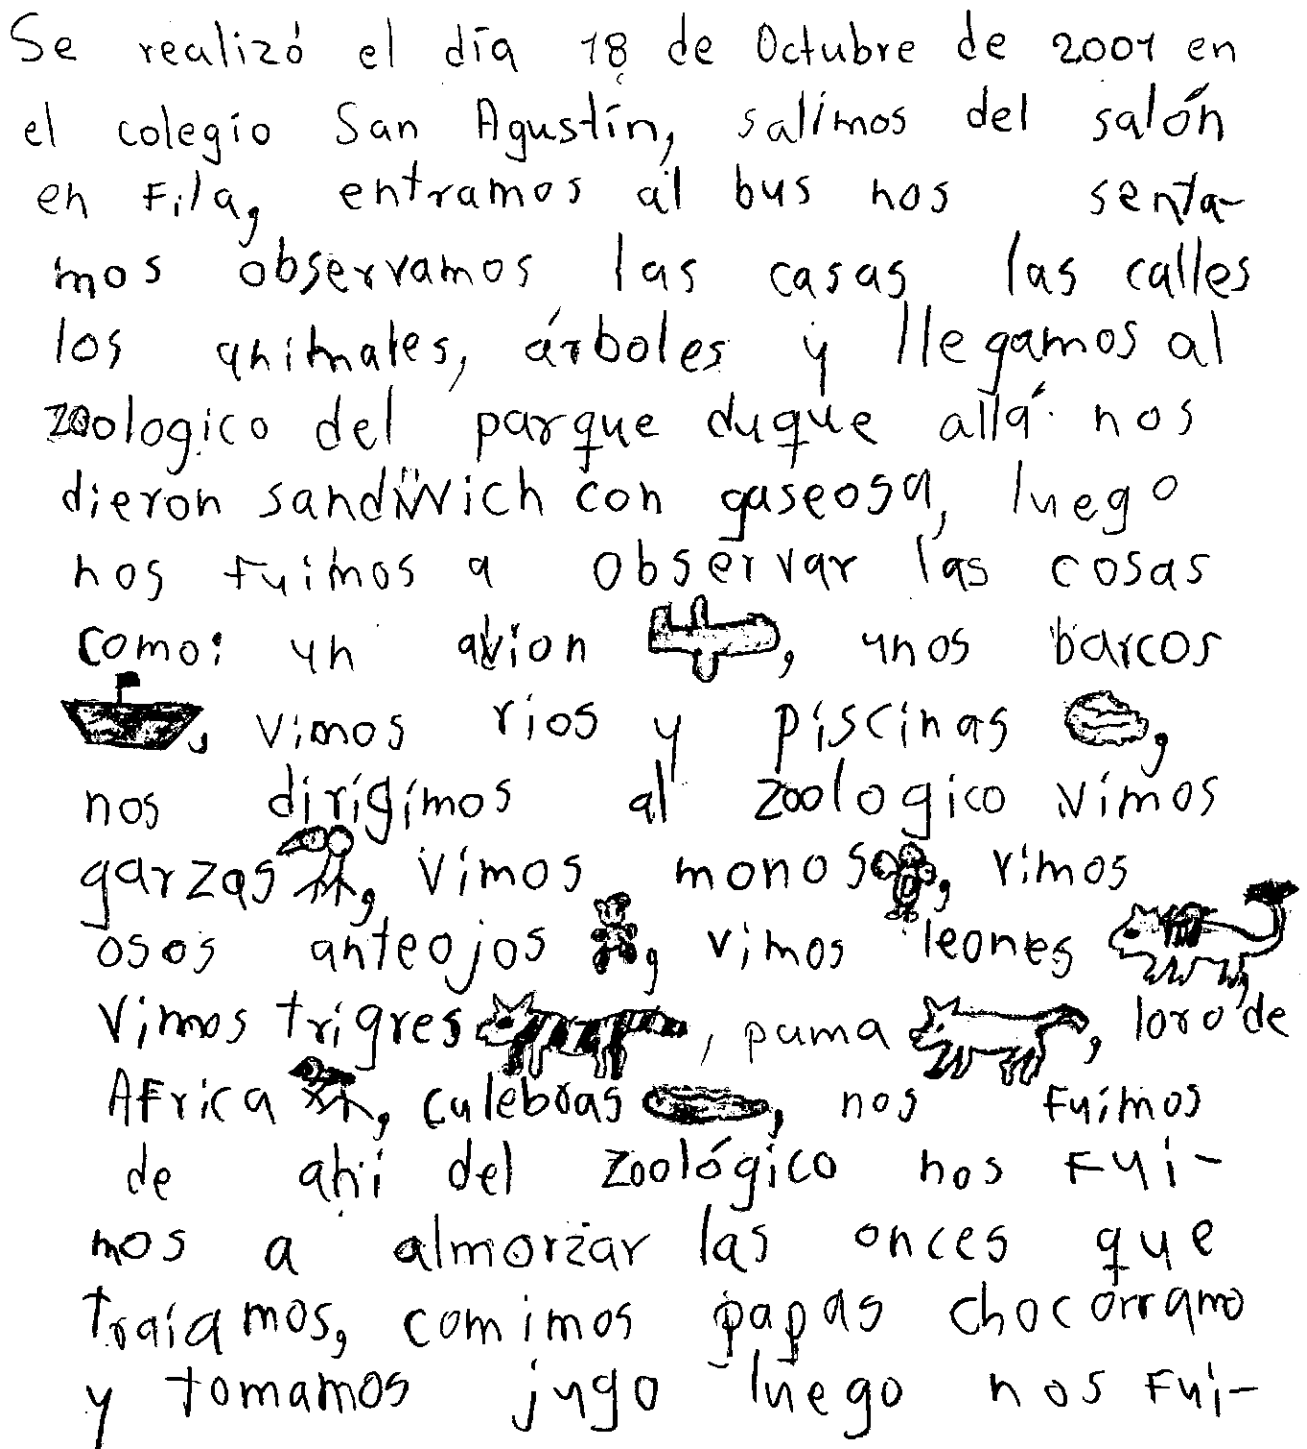 Se realizó el día 18 de Octubre de 2001 en
el colegio San Agustín, salimos del salón
en Fila, entramos al bus nos senta-
mos observamos las casas, las calles
los animales, árboles y llegamos al
zoologico del parque duque allá nos
dieron sandwich con gaseosa, luego
nos fuimos a observar las cosas
como: un avion, unos barcos
, vimos rios y piscinas,
nos dirigimos al zoologico vimos
garzas, vimos monos, vimos
osos anteojos, vimos leones,
vimos trigres, puma, loro de
AFrica, culebras, nos Fuimos
de ahi del zoológico nos Fui-
mos a almorzar las onces que
traíamos, comimos papas chocorramo
y tomamos jugo luego nos Fui-